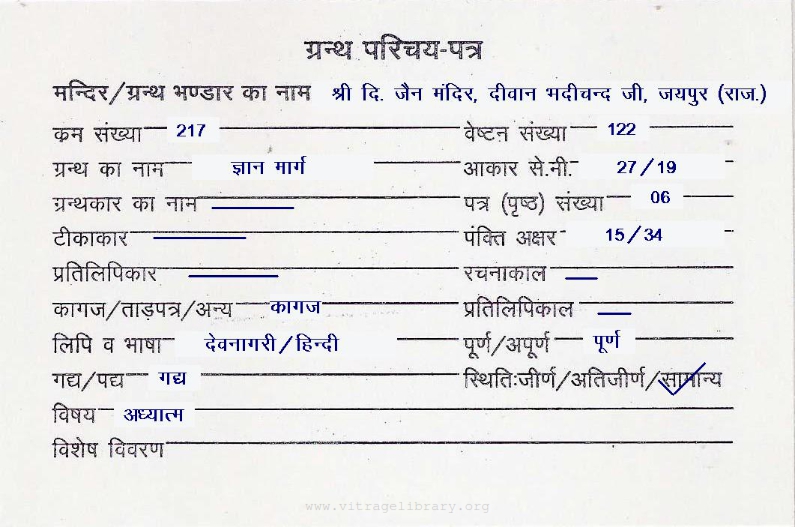 ग्रन्थ परिचय-पत्र
मन्दिर/ग्रन्थ भण्डार का नाम श्री दि. जैन मंदिर, दीवान भदीचन्द जी, जयपुर (राज.)
कम संख्या 217 वेष्टन संख्या 122
ग्रन्थ का नाम ज्ञान मार्ग आकार से.मी. 27/19
ग्रन्थकार का नाम पत्र (पृष्ठ) संख्या 06
टीकाकार पंक्ति अक्षर 15/34
प्रतिलिपिकार रचनाकाल
कागज/ताड़पत्र/अन्य कागज प्रतिलिपिकाल
लिपि व भाषा देवनागरी/हिन्दी पूर्ण/अपूर्ण पूर्ण
गद्य/पद्य गद्य स्थितिःजीर्ण/अतिजीर्ण/सामान्य
विषय अध्यात्म
विशेष विवरण
www.vitragelibrary.org